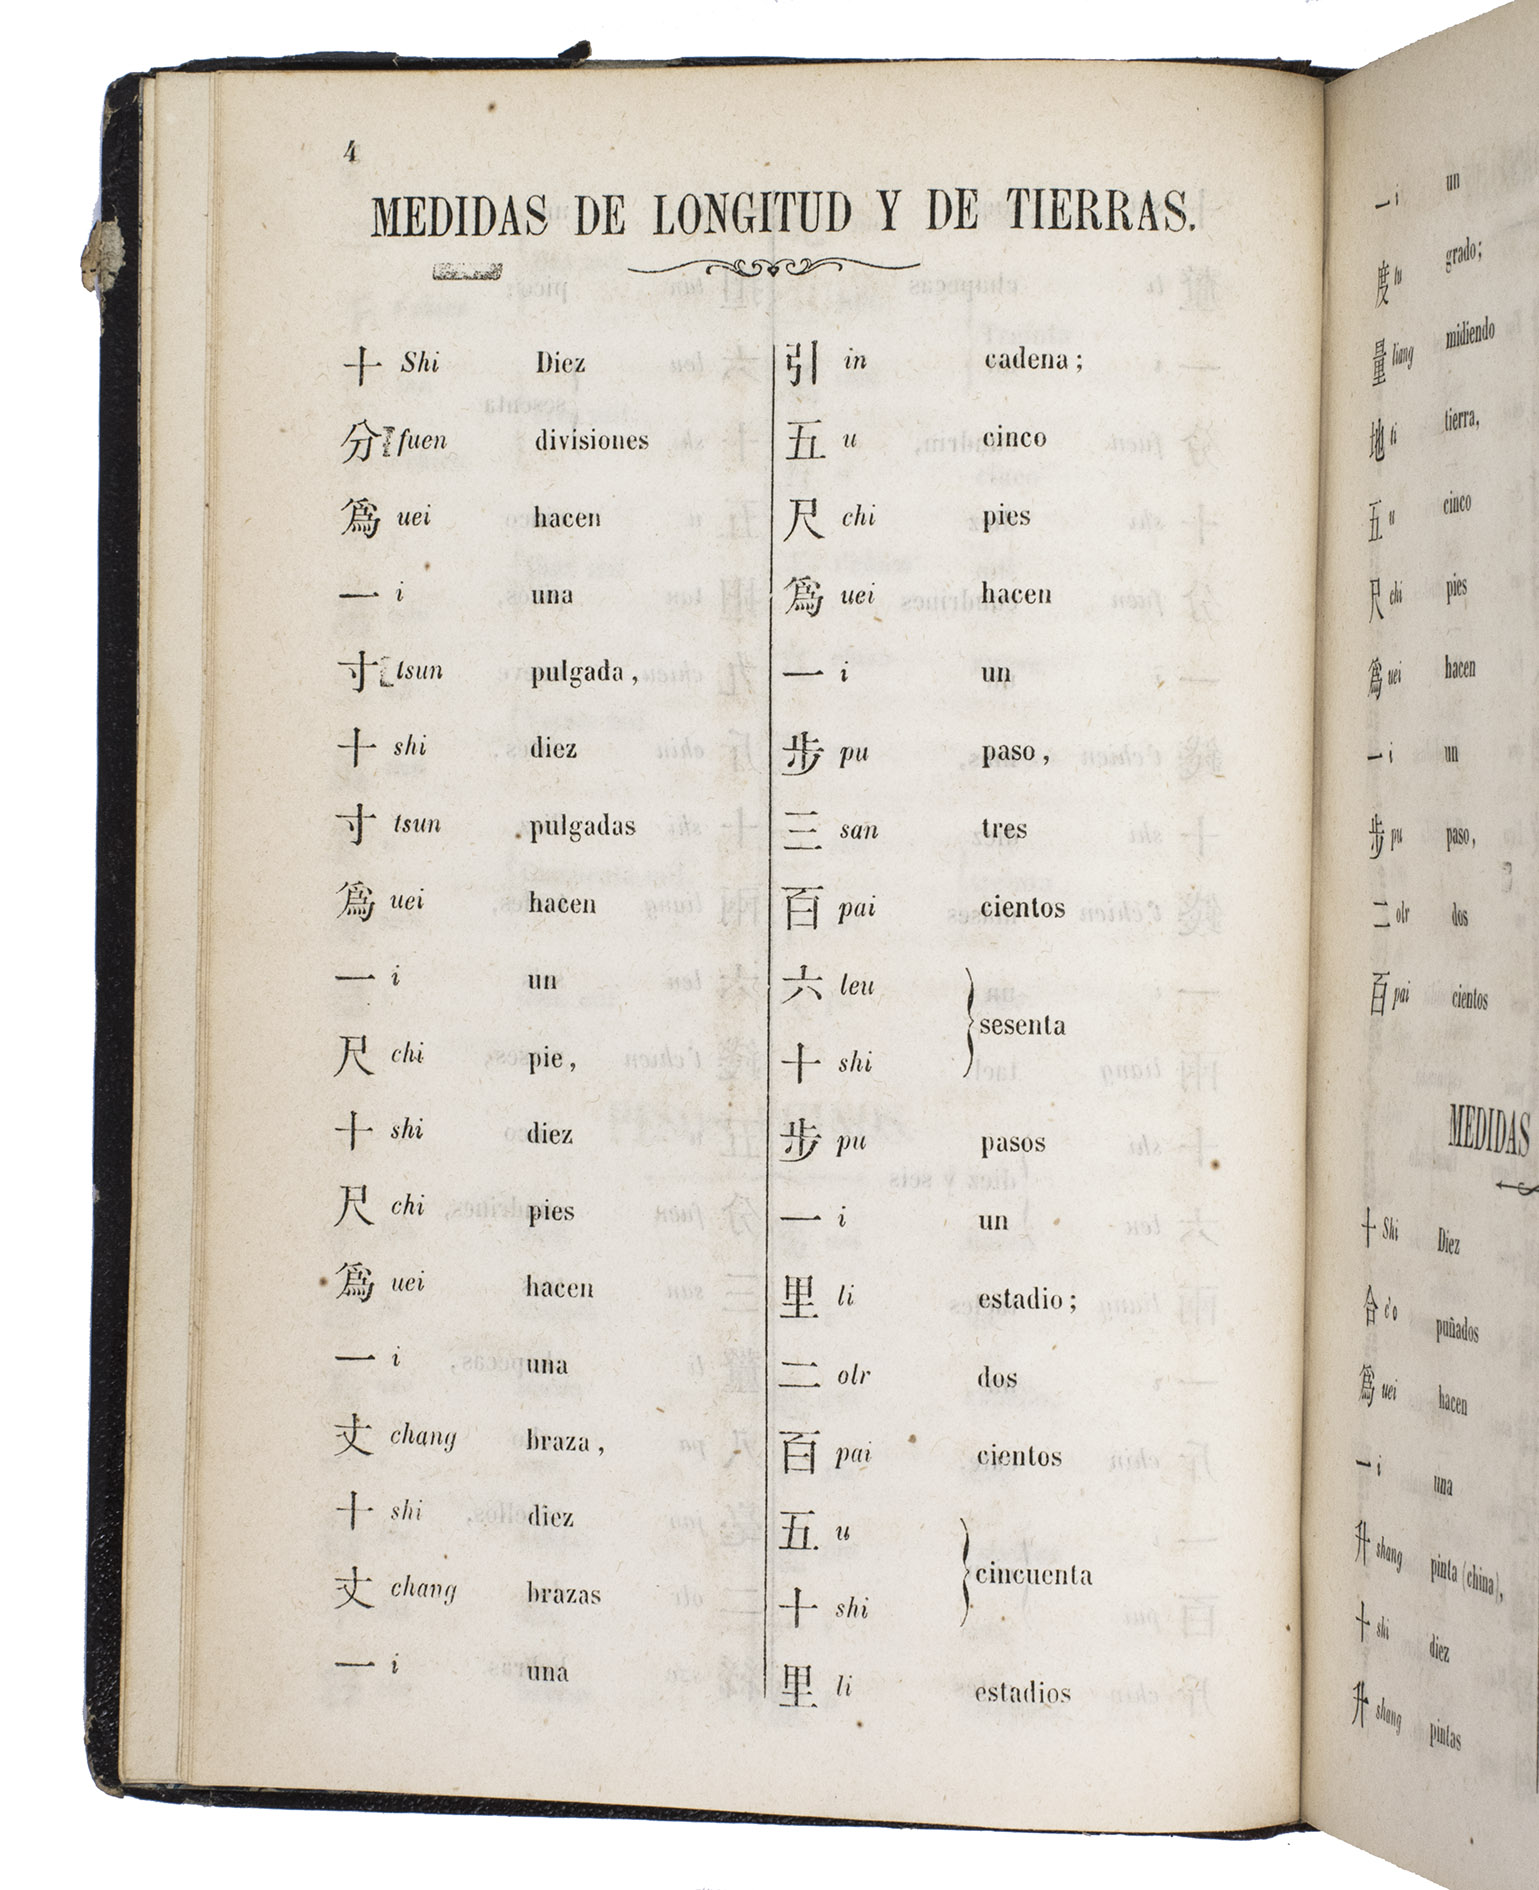 4
MEDIDAS DE LONGITUD Y DE TIERRAS.
十 Shi Diez
分 fuen divisiones
爲 uei hacen
一 i una
寸 tsun pulgada,
十 shi diez
寸 tsun pulgadas
爲 uei hacen
一 i un
尺 chi pie,
十 shi diez
尺 chi pies
爲 uei hacen
一 i una
丈 chang braza,
十 shi diez
丈 chang brazas
一 i una
引 in cadena;
五 u cinco
尺 chi pies
爲 uei hacen
一 i un
步 pu paso,
三 san tres
百 pai cientos
六 leu
sesenta
十 shi
步 pu pasos
一 i un
里 li estadio;
二 olr dos
百 pai cientos
五 u
cincuenta
十 shi
里 li estadios
一 i un
度 tu grado;
量 liang midiendo
地 ti tierra,
五 u cinco
尺 chi pies
爲 uei hacen
一 i un
步 pu paso,
二 olr dos
百 pai cientos
MEDIDAS
十 Shi Diez
合 c'o puñados
爲 uei hacen
一 i una
升 shang pinta (china),
十 shi diez
升 shang pintas